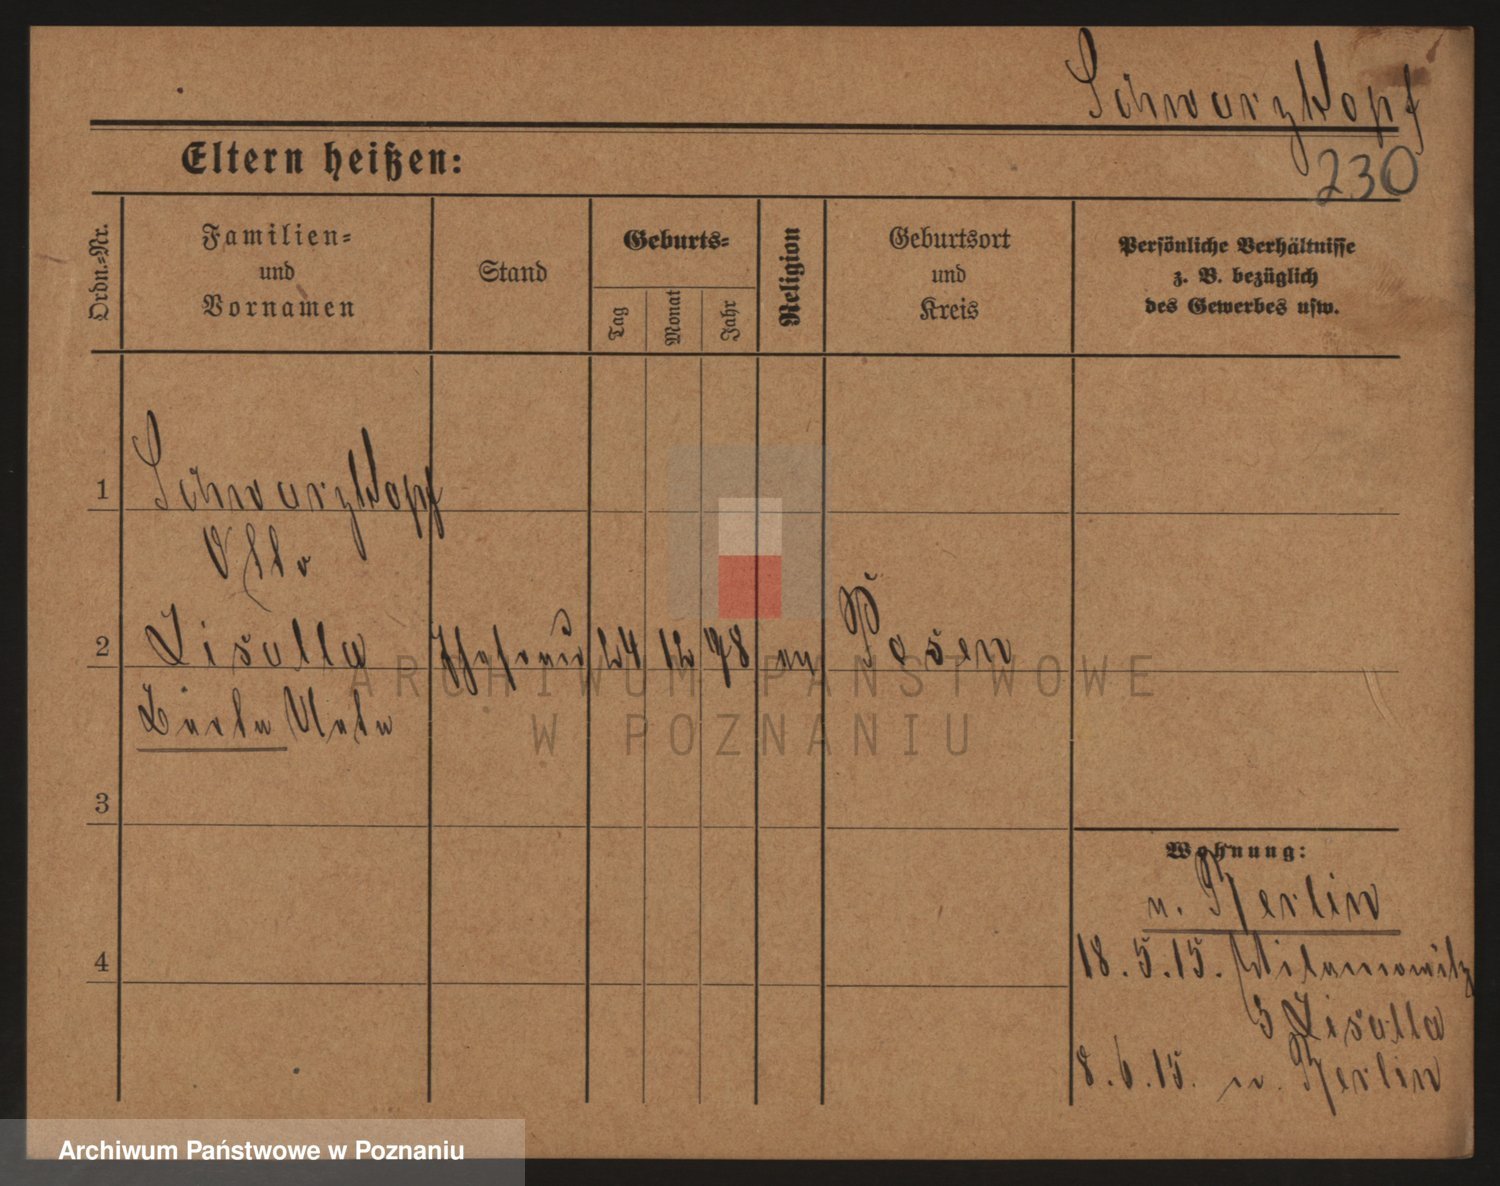 Schwarzkopf
230
Eltern heißen:
Ordn.=Nr.
Familien=
und
Vornamen
Stand
Geburts=
Tag
Monat
Jahr
Religion
Geburtsort
und
Kreis
Persönliche Verhältnisse
z. B. bezüglich
des Gewerbes usw.
1 Schwarzkopf
Otto
2 Zisalla Ehefrau 24 12 78 ev Posen
3
4
Wohnung:
n. Berlin
18. 5. 15. Wilamowitz
3 Zisalla
8. 6. 15. n. Berlin
ARCHIWUM PAŃSTWOWE
W POZNANIU
Archiwum Państwowe w Poznaniu